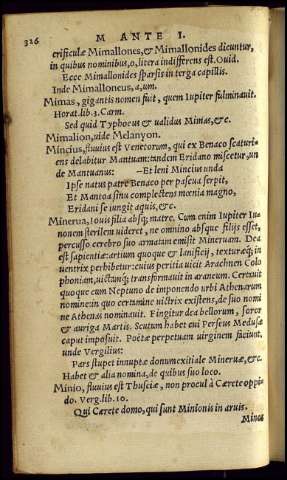 326
M ANTE I.
crificulæ Mimallones, & Mimallonides dicuntur,
in quibus nominibus, o, litera indifferens est. Ovid.
Ecce Mimallonides sparsis in terga capillis.
Inde Mimalloneus, a, um.
Mimas, gigantis nomen fuit, quem Iupiter fulminauit.
Horat. lib. 3. Carm.
Sed quid Typhoeus & ualidus Mimas, &c.
Mimalion, uide Melanyon.
Mincius, fluuius est Venetorum, qui ex Benaco scaturi-
ens delabitur Mantuam: tandem Eridano miscetur, un
de Mantuanus: —Et leni Mincius unda
Ipse natus patre Benaco per pascua serpit,
Et Mantoa sinu complectens mœnia magno,
Eridani se iungit aquis, &c.
Minerua, Iouis filia absq; matre. Cum enim Iupiter Iu-
nonem sterilem uideret, ne omnino absque filijs esset,
percusso cerebro suo armatam emisit Mineruam. Dea
est sapientiæ: artium quoque & lanificij, texturæq;, in
uentrix perhibetur: cuius peritia uicit Arachnen Colo
phoniam, uictamq; transformauit in araneum. Certauit
quoque cum Neptuno de imponendo urbi Athenarum
nomine: in quo certamine uictrix existens, de suo nomi
ne Athenas nominauit. Fingitur dea bellorum, soror
& auriga Martis. Scutum habet cui Perseus Medusæ
caput imposuit. Poëtæ perpetuam uirginem faciunt,
unde Vergilius:
Pars stupet innuptæ donum exitiale Mineruæ, &c.
Habet & alia nomina, de quibus suo loco.
Minio, fluuius est Thusciæ, non procul à Cærete oppi
do. Verg. lib. 10.
Qui Cærete domo, qui sunt Minionis in aruis.
Minos